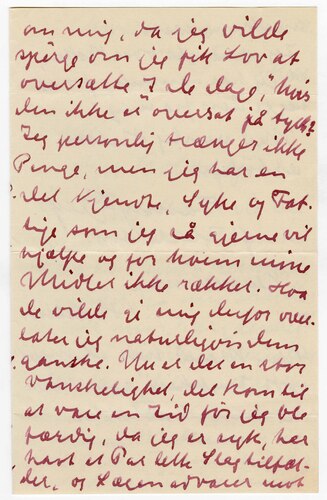 om mig, da jeg vilde
spørge om jeg fik Lov at
oversætte "7 de dage", hvis
den ikke er oversat på tysk?
Jeg personlig trænger ikke
Penge, men jeg har en
del Kjendte, Syke og Fat-
tige som jeg så gjerne vil
hjælpe og for hvem mine
Midler ikke rækker. Hva
de vilde gi mig derfor over-
later jeg naturligvis dem
ganske. Nu er det en stor
vanskelighet, det kom til
at vare en Tid før jeg ble
færdig, da jeg er syk, har
havt et Par lette Slagtilfæl-
der, og Lægen advarer mot